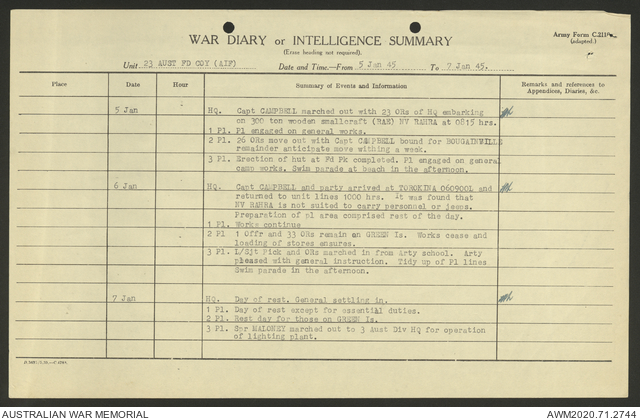 WAR DIARY or INTELLIGENCE SUMMARY
Army Form C.2118
(adapted.)
(Erase heading not required).
Unit 23 AUST FD COY (AIF) Date and Time.—From 5 Jan 45 To 7 Jan 45.
Place Date Hour Summary of Events and Information Remarks and references to Appendices, Diaries, &c.
5 Jan HQ. Capt CAMPBELL marched out with 23 ORs of HQ embarking
on 300 ton wooden smallcraft (RAE) NV RAHRA at 0815 hrs.
1 Pl Pl engaged on general works.
2 Pl. 26 ORs move out with Capt CAMPBELL bound for BOUGAINVILLE
remainder anticipate move withing a week.
3 Pl. Erection of hut at Fd Pk completed. Pl engaged on general
camp works. Swim parade at beach in the afternoon.
6 Jan HQ. Capt CAMPBELL and party arrived at TOROKINA 060900L and
returned to unit lines 1000 hrs. It was found that
NV RAHRA is not suited to carry personnel or jeeps.
Preparation of pl area comprised rest of the day.
1 Pl. Works continue
2 Pl 1 Offr and 33 ORs remain on GREEN Is. Works cease and
loading of stores ensures.
3 Pl. L/Sjt Pick and ORs marched in from Arty school. Arty
pleased with general instruction. Tidy up of Pl lines
Swim parade in the afternoon.
7 Jan HQ. Day of rest. General settling in.
1 Pl. Day of rest except for essential duties.
2 Pl. Rest day for those on GREEN Is.
3 Pl. Spr MALONEY marched out to 3 Aust Div HQ for operation
of lighting plant.
AUSTRALIAN WAR MEMORIAL AWM2020.71.2744